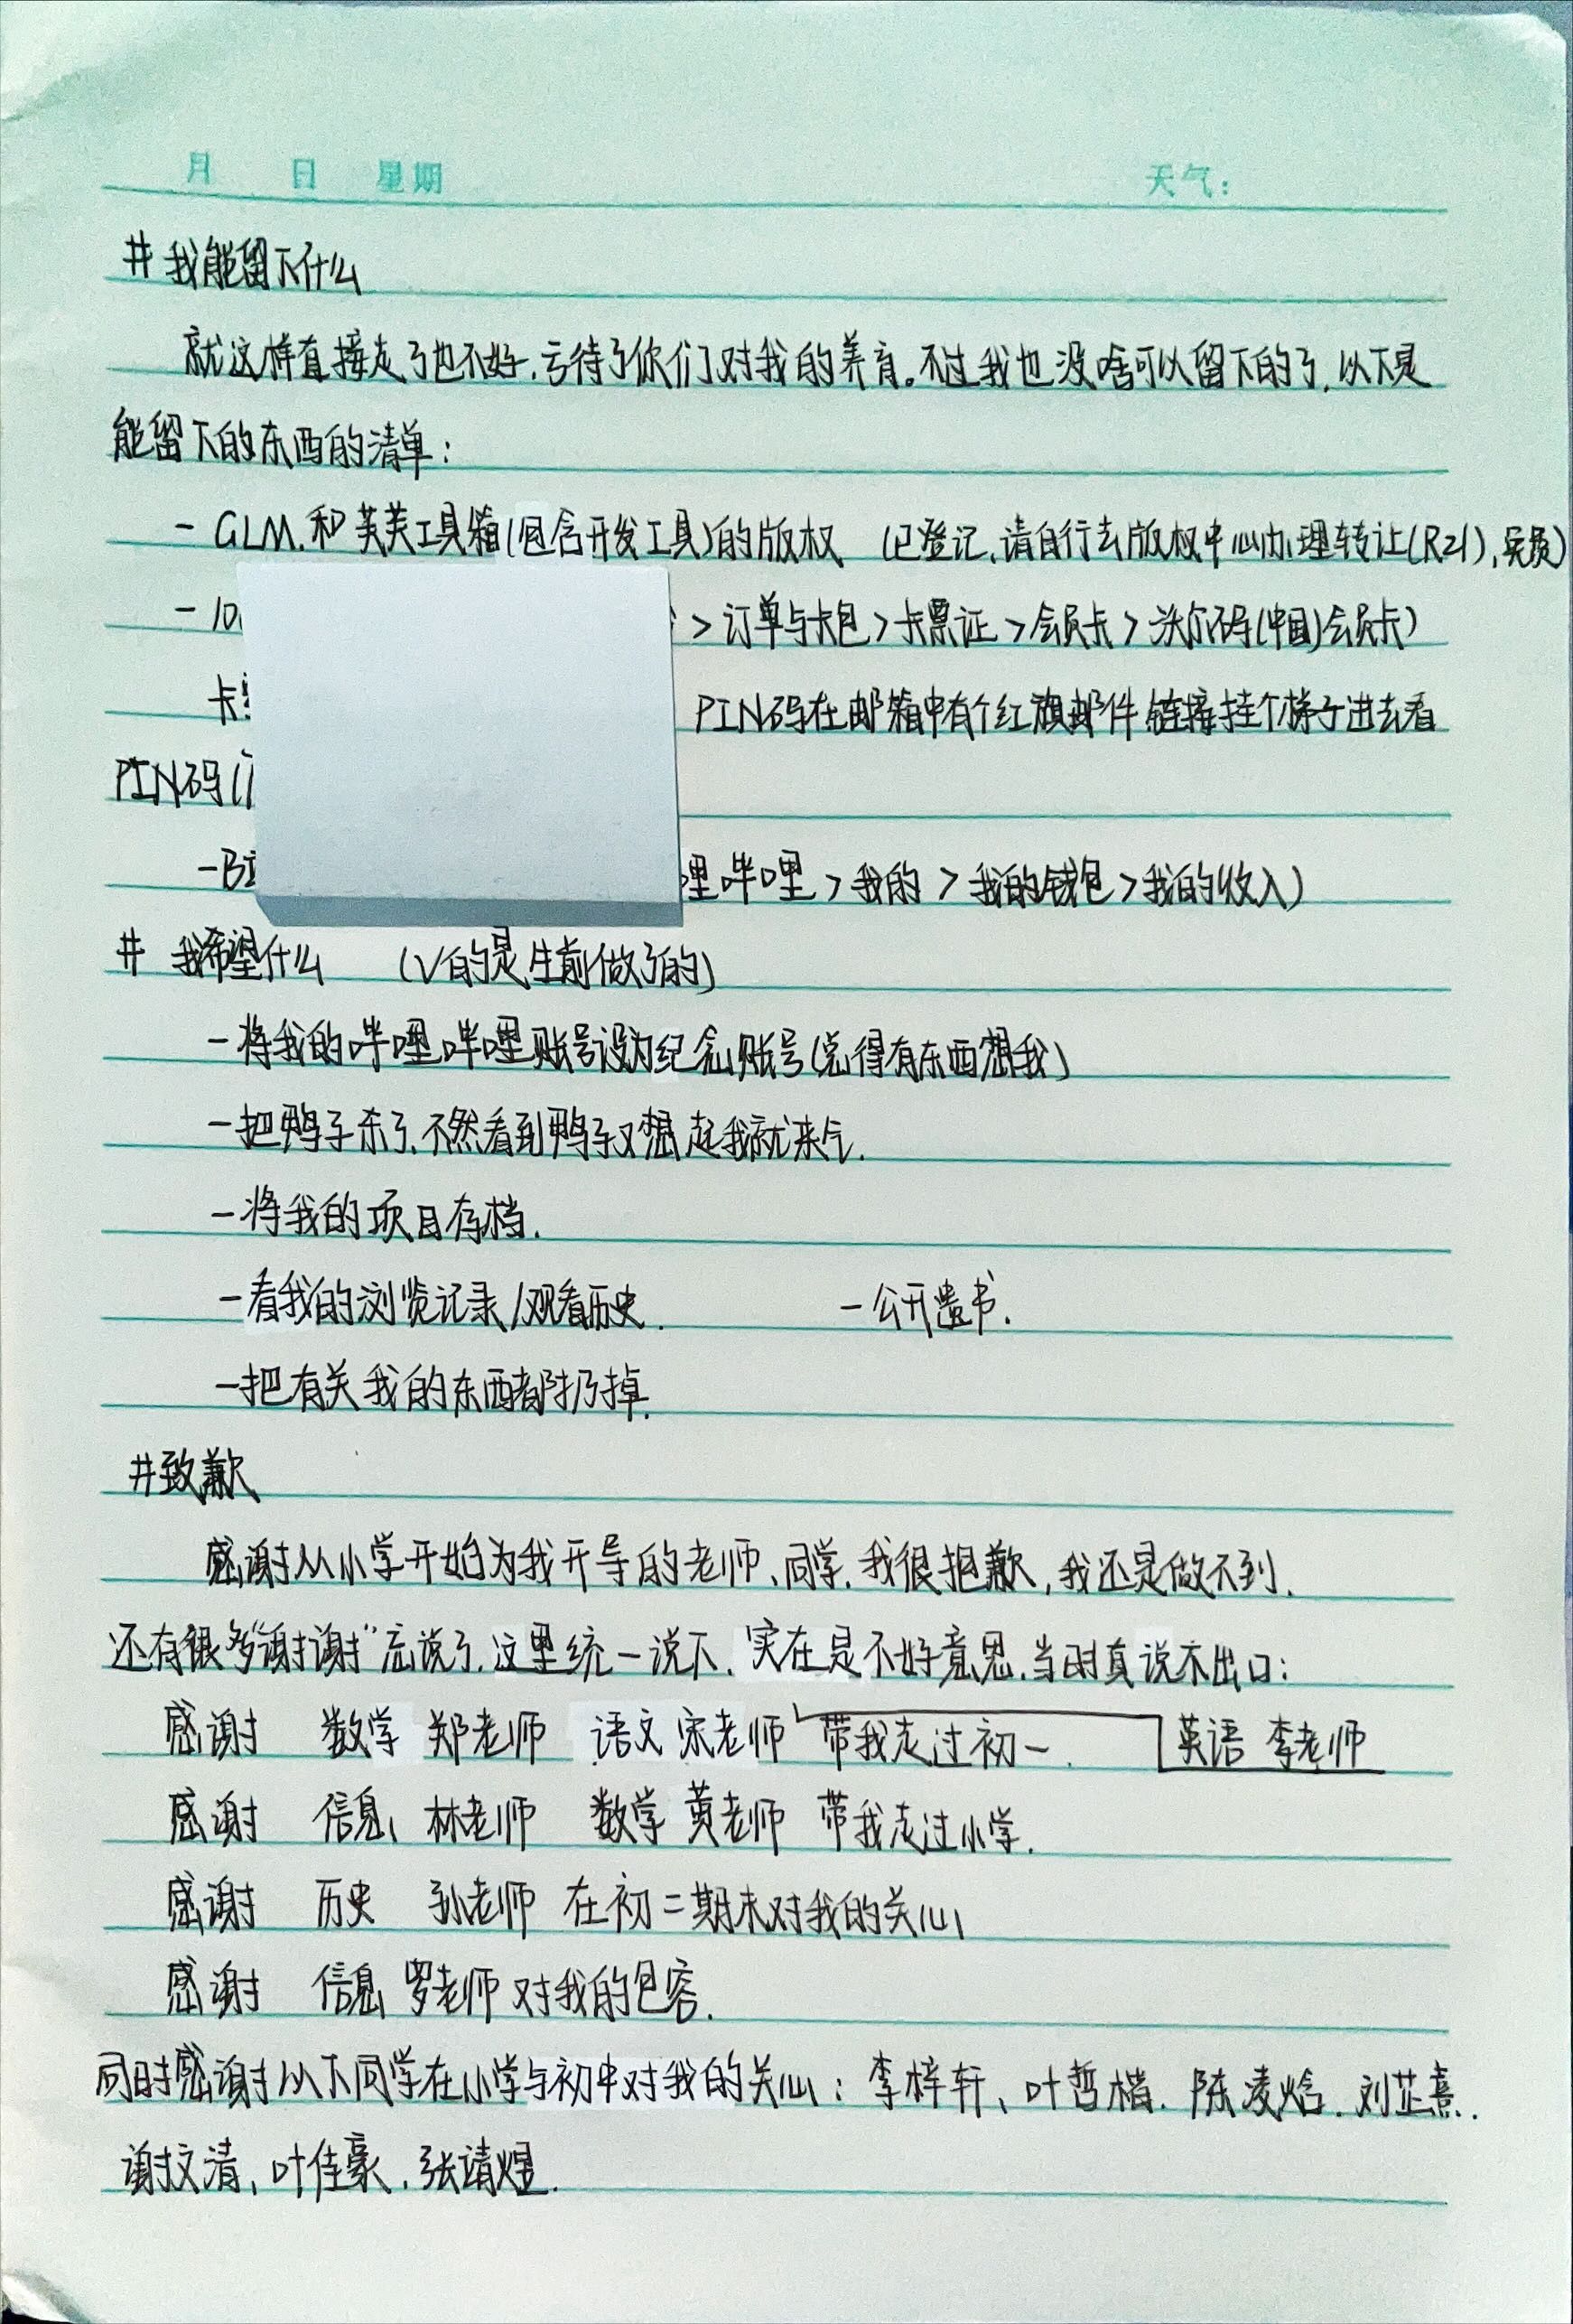 月 日 星期 天气：
# 我能留下什么
就这样直接走了也不好，亏待了你们对我的养育。不过我也没啥可以留下的了，以下是
能留下的东西的清单：
- GLM.和芙芙工具箱(包含开发工具)的版权 (已登记,请自行去版权中心办理转让(R21),免费)
- 10 > 订单与卡包 > 卡票证 > 会员卡 > 沃尔玛(中国)会员卡)
卡 PIN码在邮箱中有个红旗邮件 链接挂个梯子进去看
PIN码(
-B 哩哔哩 > 我的 > 我的钱包 > 我的收入)
# 我希望什么 (√的是生前做了的)
-将我的哔哩哔哩账号设为纪念账号(总得有东西想我)
-把鸭子杀了,不然看到鸭子又想起我就来气.
-将我的项目存档.
-看我的浏览记录/观看历史. -公开遗书.
-把有关我的东西都扔掉.
#致歉
感谢从小学开始为我开导的老师、同学,我很抱歉,我还是做不到.
还有很多“谢谢”忘说了,这里统一说下,实在是不好意思,当时真说不出口:
感谢 数学 郑老师 语文 宋老师 带我走过初一. 英语 李老师
感谢 信息 林老师 数学 黄老师 带我走过小学.
感谢 历史 孙老师 在初二期末对我的关心
感谢 信息 罗老师 对我的包容.
同时感谢以下同学在小学与初中对我的关心：李梓轩、叶哲楷、陈凌焓、刘芷熹、
谢文清、叶佳豪、张靖煜.